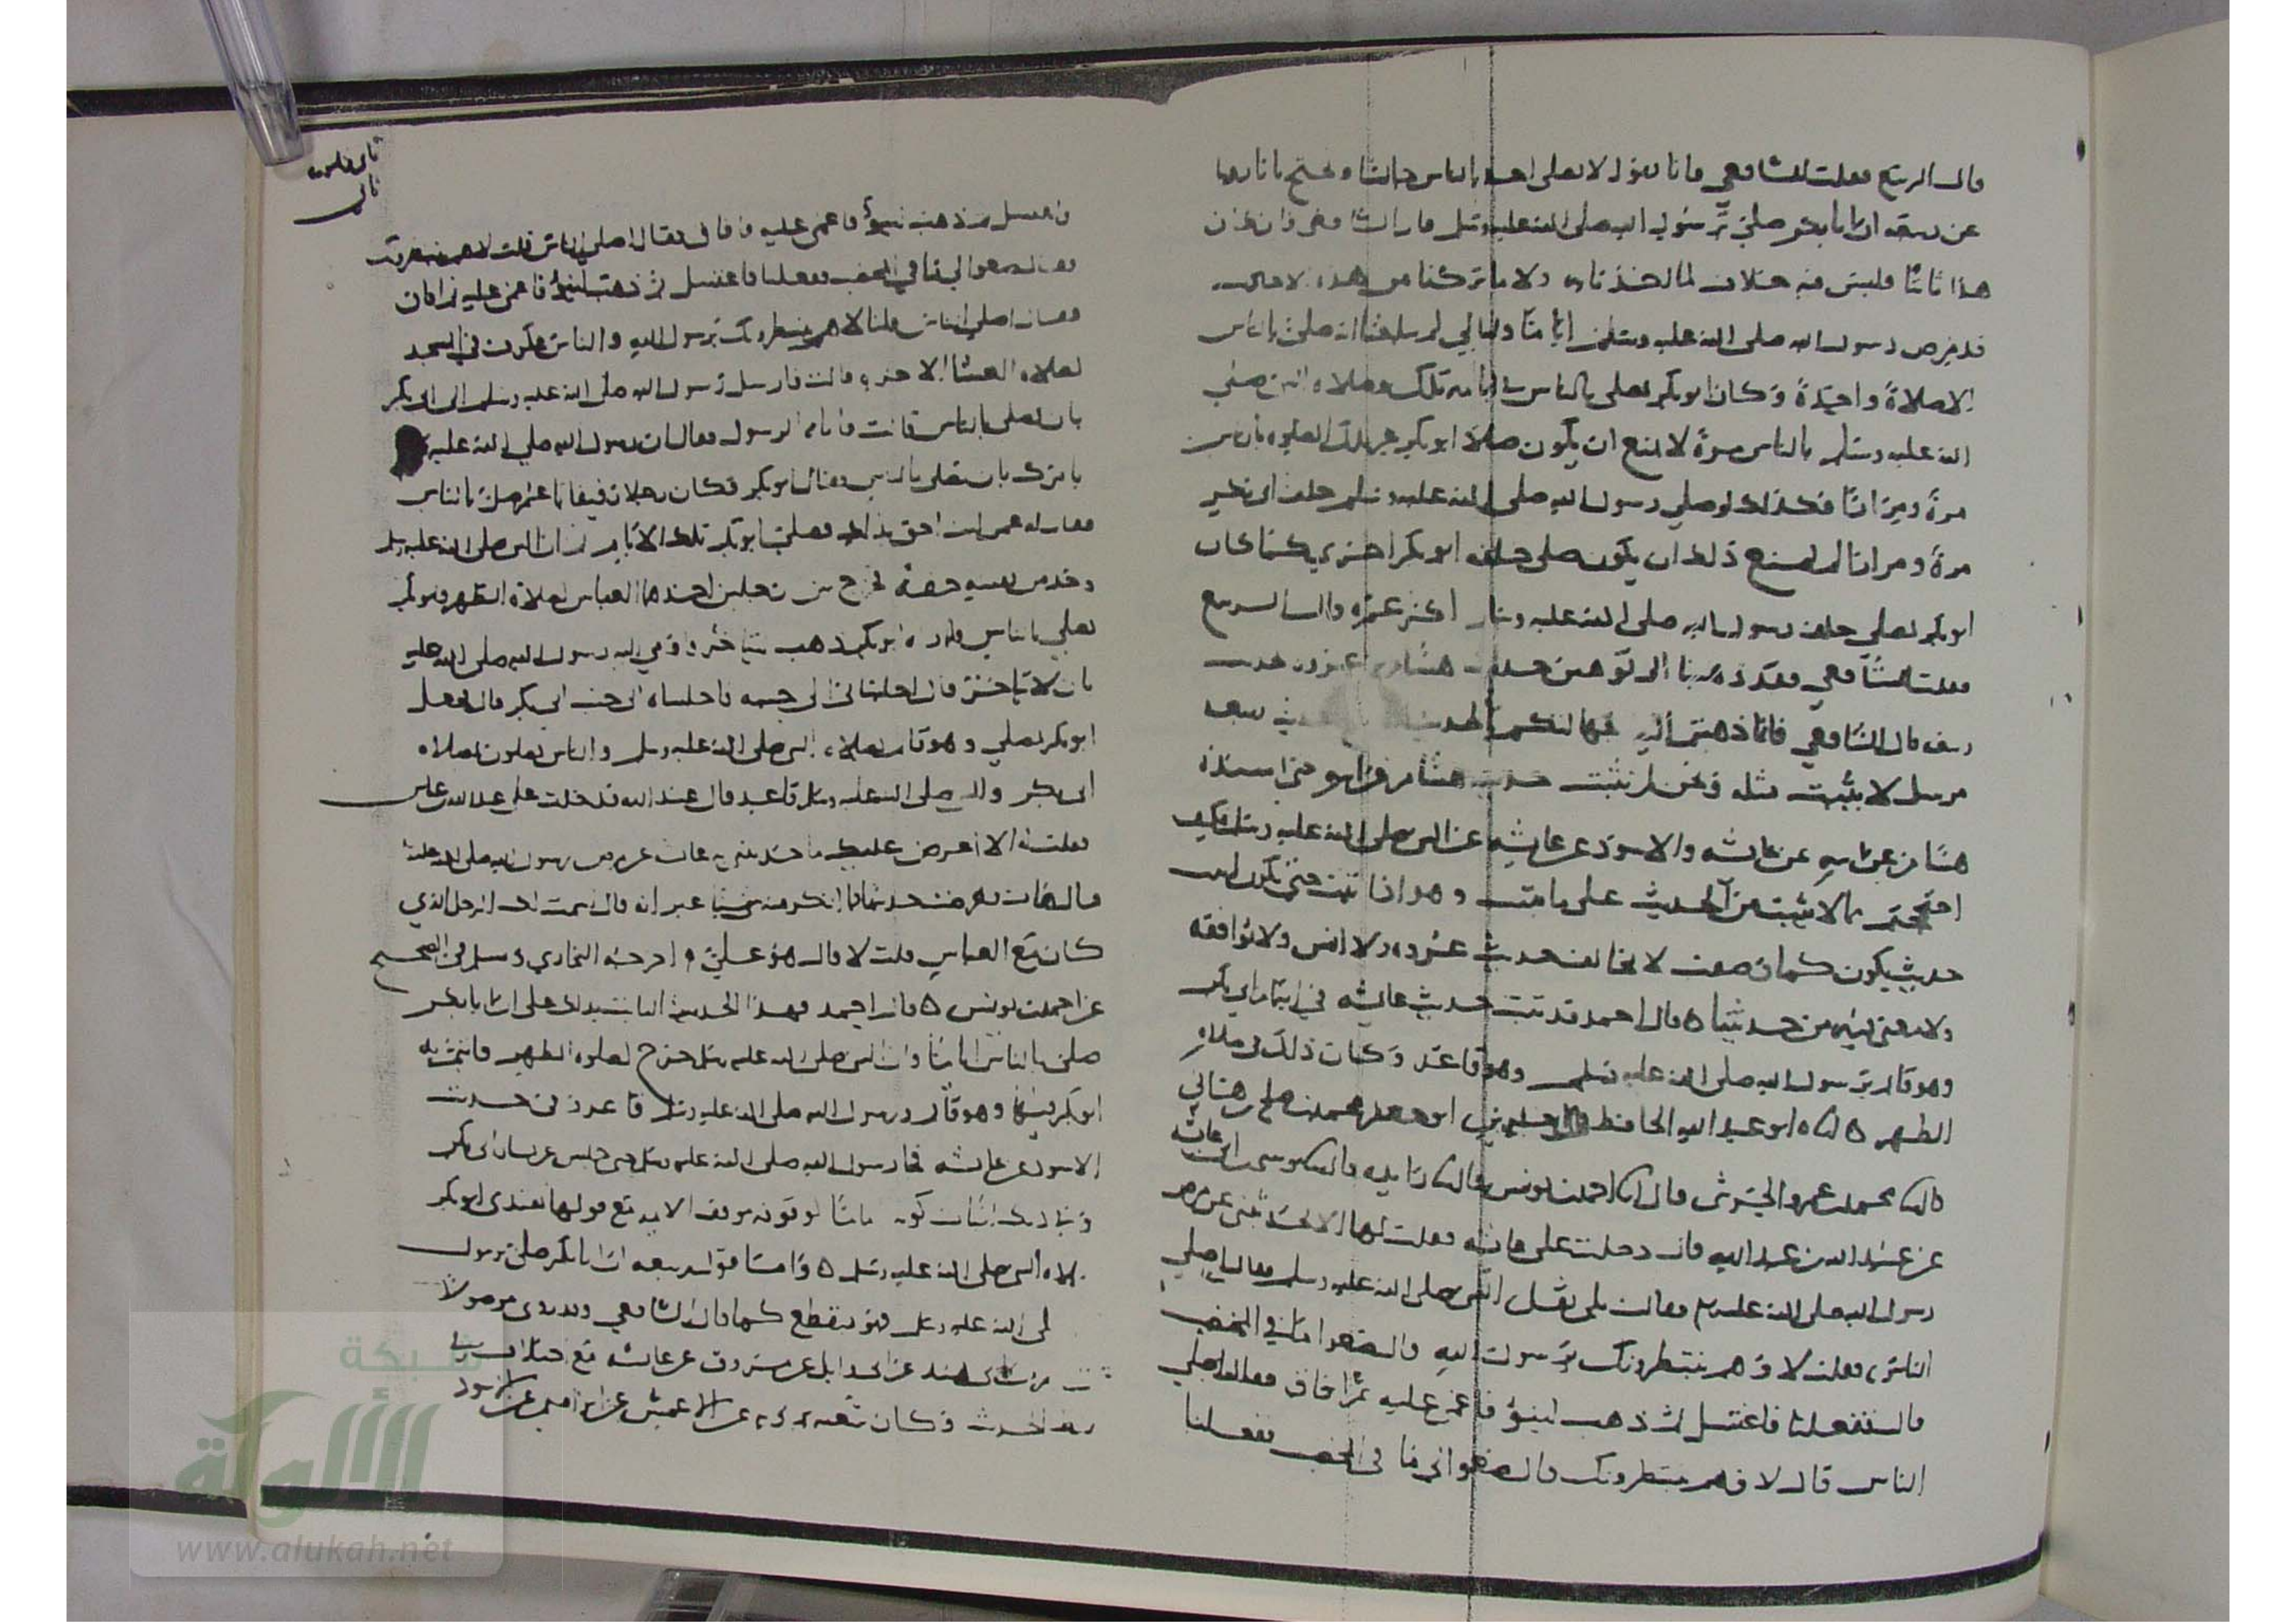 قال الربيع فقلت للشافعي فانا نقول لا يصلي احد بالناس جالسا ونحتج بانا روينا
عن ربيعه ان ابا بكر صلى برسول الله صلى الله عليه وسلم قال الشافعي فان كان
هذا ثابتا فليس فيه خلاف لما اخذنا به ولا ما تركنا من هذه الاحاديث
قد مرض رسول الله صلى الله عليه وسلم اياما وليالي لم يبلغنا انه صلى بالناس
الا صلاة واحدة وكان ابو بكر يصلي بالناس في ايامه تلك وصلاه النبي صلى
الله عليه وسلم بالناس مرة لا تمنع ان يكون صلى ابو بكر غير تلك الصلوه بالناس
مرة ومرارا فكذلك لو صلى رسول الله صلى الله عليه وسلم خلف ابي بكر
مرة ومرارا لم يمنع ذلك ان يكون صلى خلفه ابو بكر اخرى كما كان
ابو بكر يصلي خلف رسول الله صلى الله عليه وسلم اكثر عمره قال الربيع
فقلت للشافعي فقد ذهبنا الى توهين حديث هشام بن عروه بحديث
ربيعه قال الشافعي فانما ذهبتم اليه لجهالتكم بالحديث حديث ربيعه
مرسل لا يثبت مثله ونحن لم نثبت حديث هشام بن عروه حتى اسنده
هشام عن ابيه عن عائشه والاسود عن عائشه عن النبي صلى الله عليه وسلم فكيف
احتججتم بما لا يثبت من الحديث على ما ثبت وهو اذا ثبت حتى يكون اثبت
حديث يكون كما وصفت لا يخالف حديث عروه ولا انس ولا يوافقه
ولا بمعنى يوهن حديثنا ٥ قال احمد قد ثبت حديث عائشه في ايتمام ابي بكر
وهو قائم برسول الله صلى الله عليه وسلم وهو قاعد وكان ذلك في صلاه
الظهر ٥ اخبرناه ابو عبد الله الحافظ قال اخبرني ابو جعفر محمد بن صالح بن هاني
قال حدثنا محمد بن عمرو الحرشي قال حدثنا احمد بن يونس قال حدثنا زايده قال حدثنا موسى بن ابي عائشه
عن عبيد الله بن عبد الله قال دخلت على عائشه فقلت لها الا تحدثيني عن مرض
رسول الله صلى الله عليه وسلم فقالت بلى ثقل النبي صلى الله عليه وسلم فقال اصلى
الناس فقلت لا وهم ينتظرونك يرسول الله قال ضعوا ماء في المخضب
قالت ففعلنا فاغتسل ثم ذهب لينوء فاغمي عليه ثم افاق فقال اصلى
الناس قال لا وهم ينتظرونك قال ضعوا لي ماء في المخضب ففعلنا
فاغتسل ثم ذهب لينوء فاغمي عليه فافاق فقال اصلى الناس قلت لا هم ينتظرونك
فقال ضعوا لي ماء في المخضب ففعلنا فاغتسل ثم ذهب لينوء فاغمي عليه ثم افاق
فقال اصلى الناس قلنا لا هم ينتظرونك يرسول الله والناس عكوف في المسجد
لصلاه العشا الاخره قالت فارسل رسول الله صلى الله عليه وسلم الى ابي بكر
بان يصلي بالناس قالت فاتاه الرسول فقال ان رسول الله صلى الله عليه
يامرك بان تصلي بالناس فقال ابو بكر وكان رجلا رقيقا يا عمر صل بالناس
فقال له عمر انت احق بذلك فصلى ابو بكر تلك الايام ثم ان النبي صلى الله عليه وسلم
وجد من نفسه خفة فخرج بين رجلين احدهما العباس لصلاة الظهر وابو بكر
يصلي بالناس فلما راه ابو بكر ذهب ليتاخر فاومى اليه رسول الله صلى الله عليه
بان لا يتاخر قال اجلساني الى جنبه فاجلساه الى جنب ابي بكر قال فجعل
ابو بكر يصلي وهو قائم بصلاه النبي صلى الله عليه وسلم والناس يصلون بصلاه
ابي بكر والنبي صلى الله عليه وسلم قاعد قال عبيد الله فدخلت على عبد الله بن عباس
فقلت له الا اعرض عليك ما حدثتني به عائشه عن مرض رسول الله صلى الله عليه
قال هات فعرضت حديثها فما انكر منه شيئا غير انه قال سمت لك الرجل الذي
كان مع العباس قلت لا قال هو علي واخرجه البخاري ومسلم في الصحيح
عن احمد بن يونس ٥ قال احمد فهذا الحديث الثابت يدل على ان ابا بكر
صلى بالناس اياما وان النبي صلى الله عليه وسلم خرج لصلوه الظهر فائتم به
ابو بكر فيها وهو قائم ورسول الله صلى الله عليه وسلم قاعد وفي حديث
الاسود عن عائشه فجا رسول الله صلى الله عليه وسلم حتى جلس عن يسار ابي بكر
وفي ذلك اثبات كونه اماما لوقوفه موقف الامام مع قولها يقتدي ابو بكر
بصلاه النبي صلى الله عليه وسلم ٥ واما قول ربيعه ان ابا بكر صلى برسول
صلى الله عليه وسلم فهو منقطع كما قال الشافعي وقد روي موصولا
من حديث نعيم بن ابي هند عن ابي وايل عن مسروق عن عائشه مع اختلاف في
هذا الحديث وكان شعبه يرويه عن الاعمش عن ابراهيم عن الاسود
شبكة
الألوكة
www.alukah.net